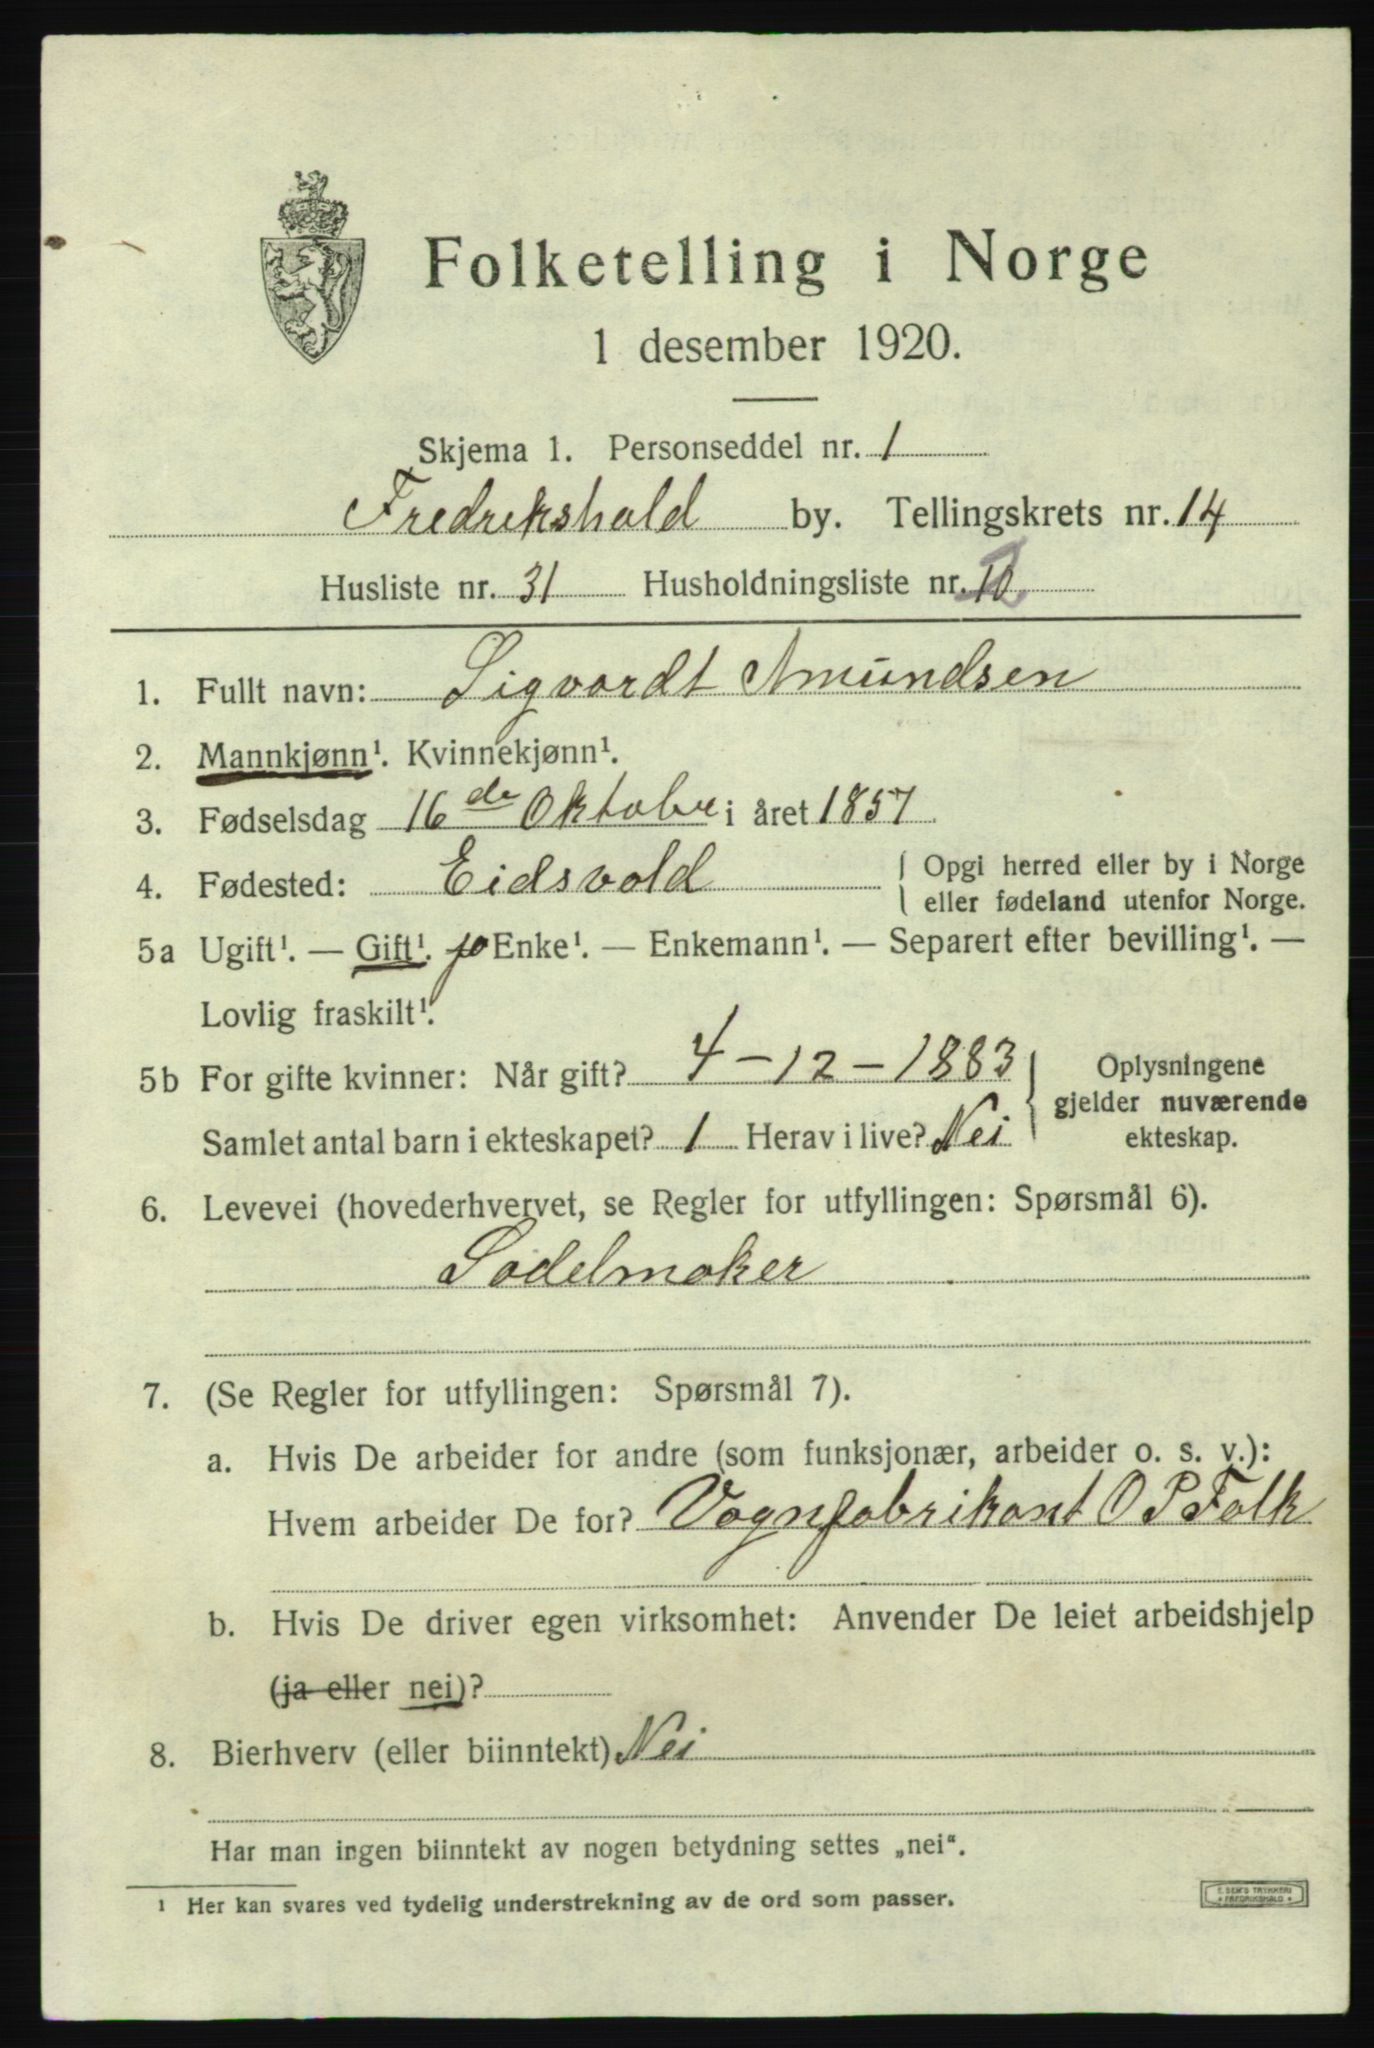 Folketelling i Norge
1 desember 1920.
Skjema 1. Personseddel nr. 1
Fredrikshald by. Tellingskrets nr. 14
Husliste nr. 31 Husholdningsliste nr. 10
1. Fullt navn: Sigvardt Amundsen
2. Mannkjønn¹. Kvinnekjønn¹.
3. Fødselsdag 16de Oktober i året 1857
4. Fødested: Eidsvold { Opgi herred eller by i Norge
eller fødeland utenfor Norge.
5a Ugift¹. — Gift¹. jo Enke¹. — Enkemann¹. — Separert efter bevilling¹. —
Lovlig fraskilt¹.
5b For gifte kvinner: Når gift? 4-12-1883
Samlet antal barn i ekteskapet? 1 Herav i live? Nei
{ Oplysningene
gjelder nuværende
ekteskap.
6. Levevei (hovederhvervet, se Regler for utfyllingen: Spørsmål 6).
Sadelmaker
7. (Se Regler for utfyllingen: Spørsmål 7).
a. Hvis De arbeider for andre (som funksjonær, arbeider o. s. v.):
Hvem arbeider De for? Vognfabrikant O P Falk
b. Hvis De driver egen virksomhet: Anvender De leiet arbeidshjelp
(ja eller nei)?
8. Bierhverv (eller biinntekt) Nei
Har man ingen biinntekt av nogen betydning settes „nei“.
¹ Her kan svares ved tydelig understrekning av de ord som passer.
E. SEM'S TRYKKERI
• FREDRIKSHALD •